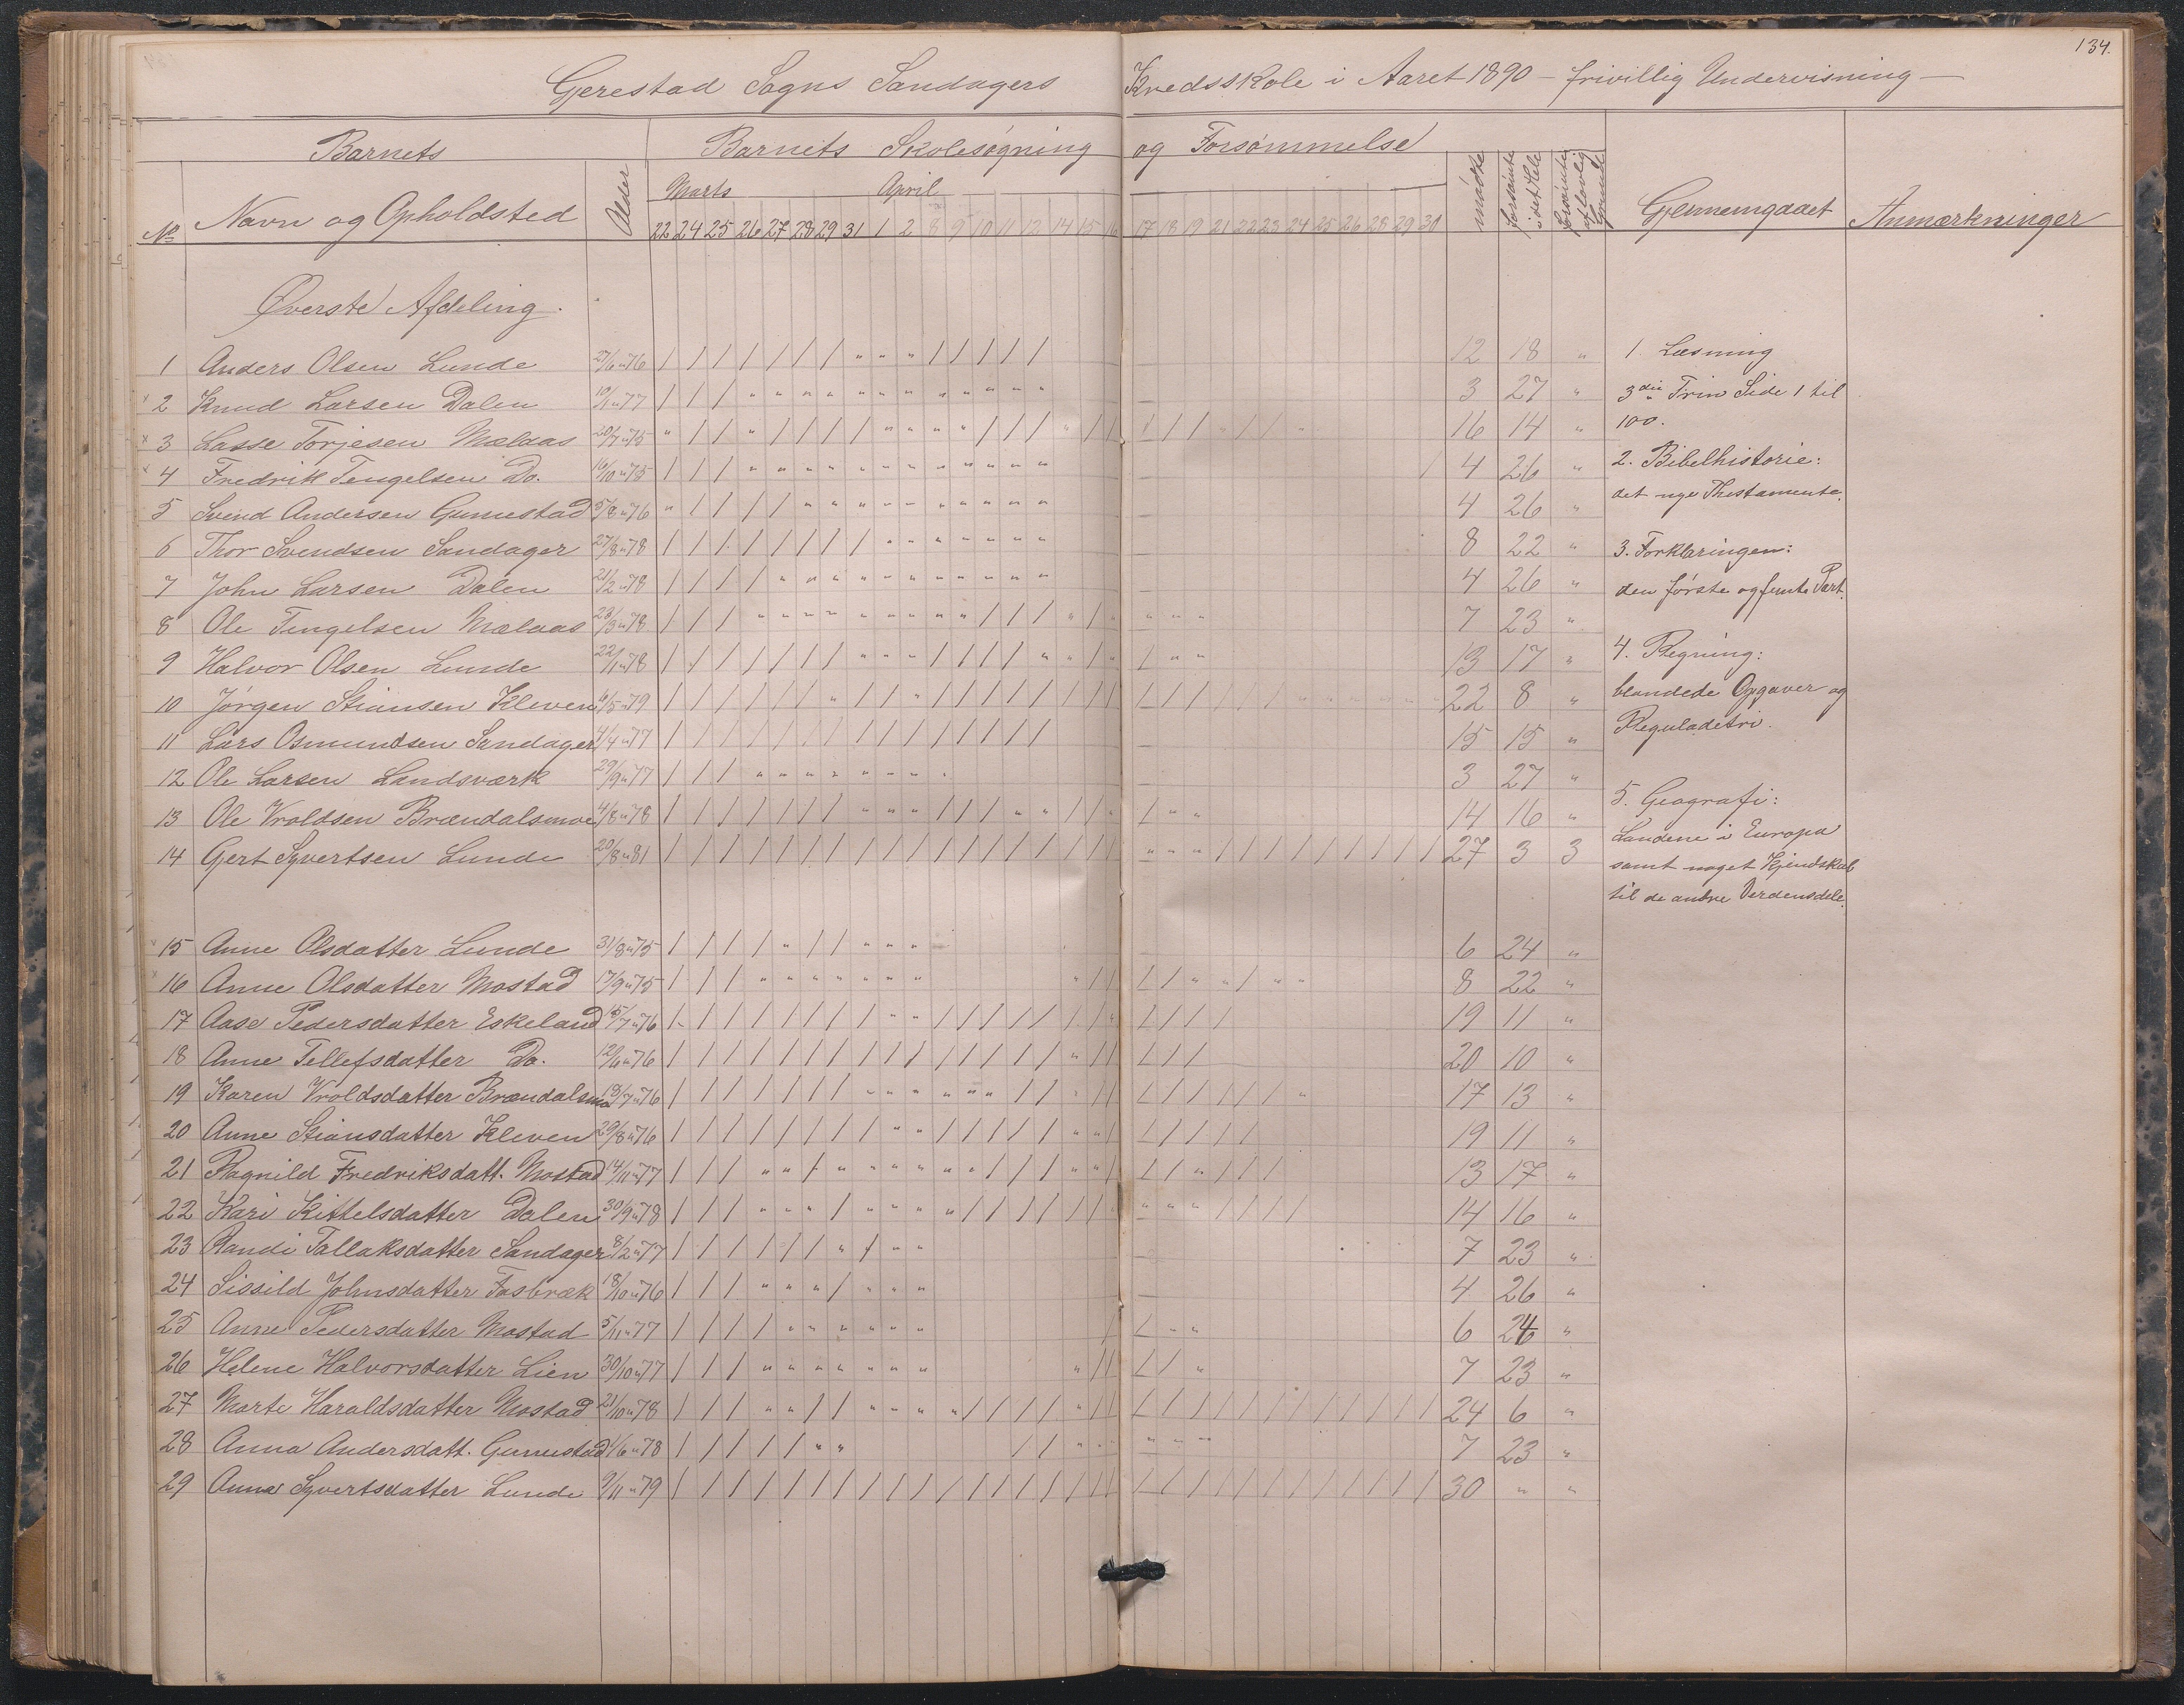 134.
Gjerestad Sogns Sandagers Kredsskole i Aaret 1890 - frivillig Undervisning -
Barnets Barnets Skolesøgning og Forsømmelse
No Navn og Opholdsted Alder Marts April mødte forsømte i det Hele forsømte af lovlig Grund Gjennemgaaet Anmærkninger
22 24 25 26 27 28 29 31 1 2 8 9 10 11 12 14 15 16 17 18 19 21 22 23 24 25 26 28 29 30
Øverste Afdeling.
1 Anders Olsen Lunde 27/6 "76 12 18 "
2 Knud Larsen Dalen 10/1 "77 3 27 "
3 Lasse Torjesen Mælaas 20/7 "75 16 14 "
4 Fredrik Tengelsen Do. 16/10 "75 4 26 "
5 Svend Andersen Gunnestad 5/8 "76 4 26 "
6 Thor Svendsen Sandager 27/8 "78 8 22 "
7 John Larsen Dalen 21/2 "78 4 26 "
8 Ole Tengelsen Mælaas 23/3 "78 7 23 "
9 Halvor Olsen Lunde 22/1 "78 13 17 "
10 Jørgen Stiansen Kleven 6/5 "79 22 8 "
11 Lars Osmundsen Sandager 4/4 "77 15 15 "
12 Ole Larsen Landsværk 29/9 "77 3 27 "
13 Ole Vroldsen Brændalsmoe 4/8 "78 14 16 "
14 Gert Syvertsen Lunde 20/8 "81 27 3 3
15 Anne Olsdatter Lunde 31/8 "75 6 24 "
16 Anne Olsdatter Mostad 17/9 "75 8 22 "
17 Aase Pedersdatter Eskeland 15/7 "76 19 11 "
18 Anne Tellefsdatter Do. 12/6 "76 20 10 "
19 Karen Vroldsdatter Brændalsmo 18/7 "76 17 13 "
20 Anne Stiansdatter Kleven 29/8 "76 19 11 "
21 Ragnild Fredriksdatt. Mostad 14/11 "77 13 17 "
22 Kari Kittelsdatter Dalen 30/9 "78 14 16 "
23 Randi Tallaksdatter Sandager 8/2 "77 7 23 "
24 Sissild Johnsdatter Fosbræk 18/10 "76 4 26 "
25 Anne Pedersdatter Mostad 5/11 "77 6 24 "
26 Helene Halvorsdatter Lien 30/10 "77 7 23 "
27 Marte Haraldsdatter Mostad 21/10 "78 24 6 "
28 Anna Andersdatt. Gunnestad 1/6 "78 7 23 "
29 Anna Syvertsdatter Lunde 9/11 "79 30 " "
1. Læsning
3die Trin Side 1 til
100.
2. Bibelhistorie:
det nye Thestamente.
3. Forklaringen:
den første og femte Part.
4. Regning:
blandede Opgaver og
Reguladetri.
5. Geografi:
Landene i Europa
samt noget Kjendskab
til de andre Verdensdele.